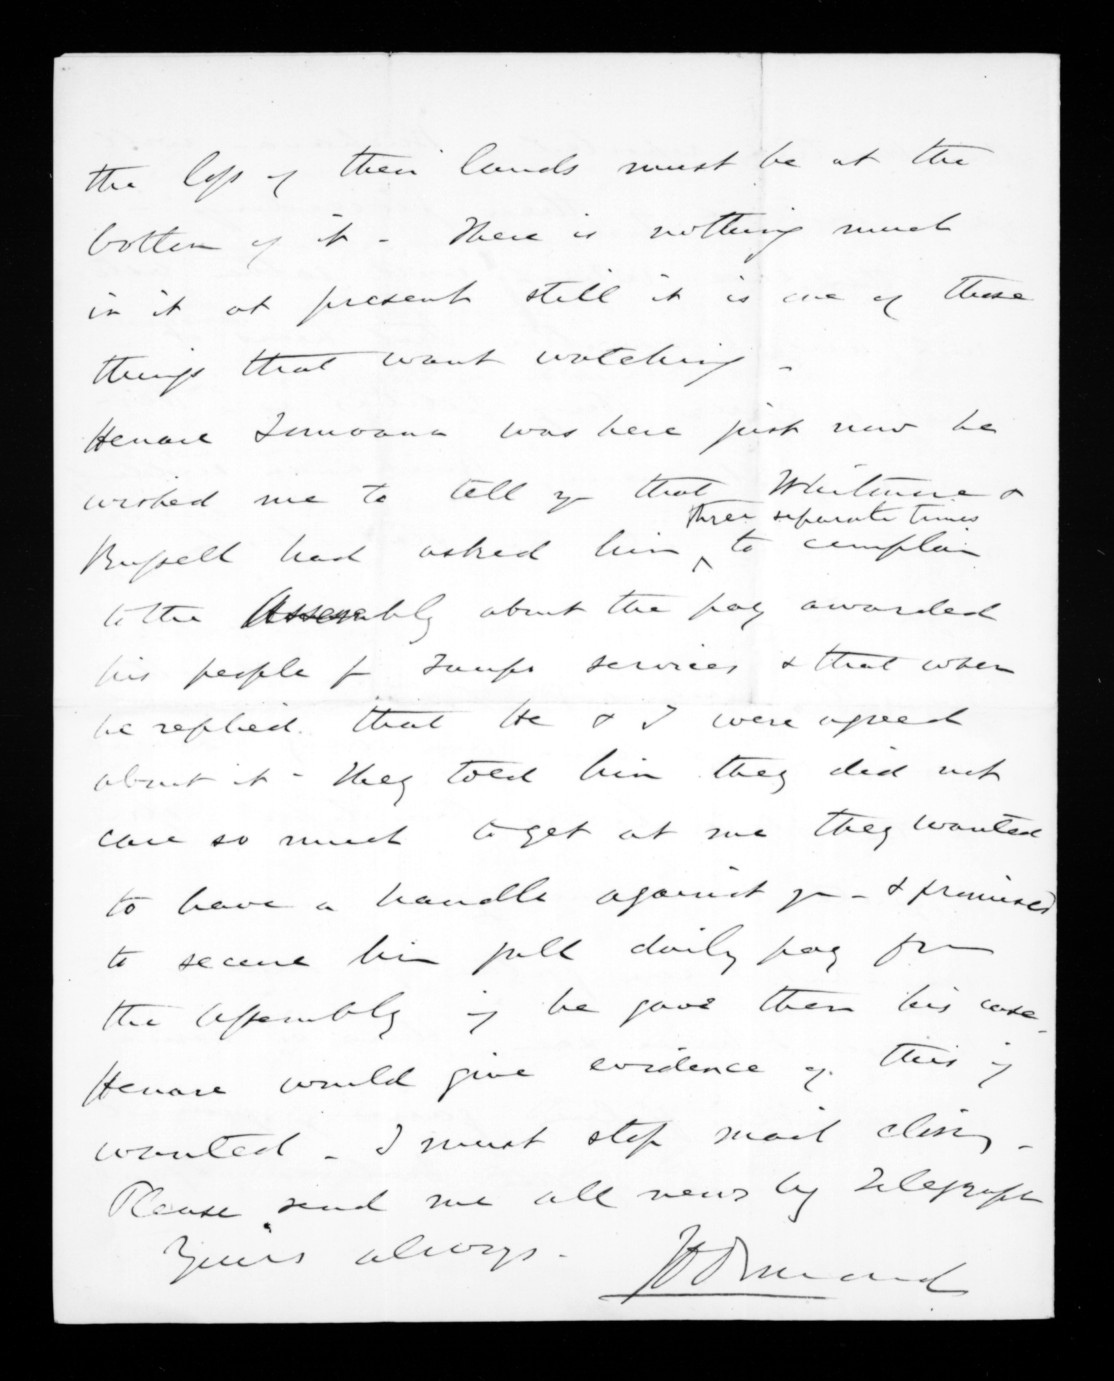 the loss of their lands must be at the
bottom of it - There is nothing much
in it at present still it is one of those
things that want watching -
Henare Tomoana was here just now he
wished me to tell yr that Whitmore &
three separate times
Russell had asked him ^ to complain
to the Assembly about the pay awarded
his people for Taupo services & that when
he replied that He & I were agreed
about it - They told him they did not
care so much to get at me they wanted
to have a handle against yr - & promised
to secure him full daily pay from
the Assembly if he gave them his case.
Henare would give evidence of this if
wanted - I must stop mail closing -
Please send me all news by Telegraph
Yours always -
JD Ormond